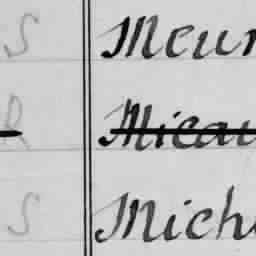 S Meur
R Micau
S Mich